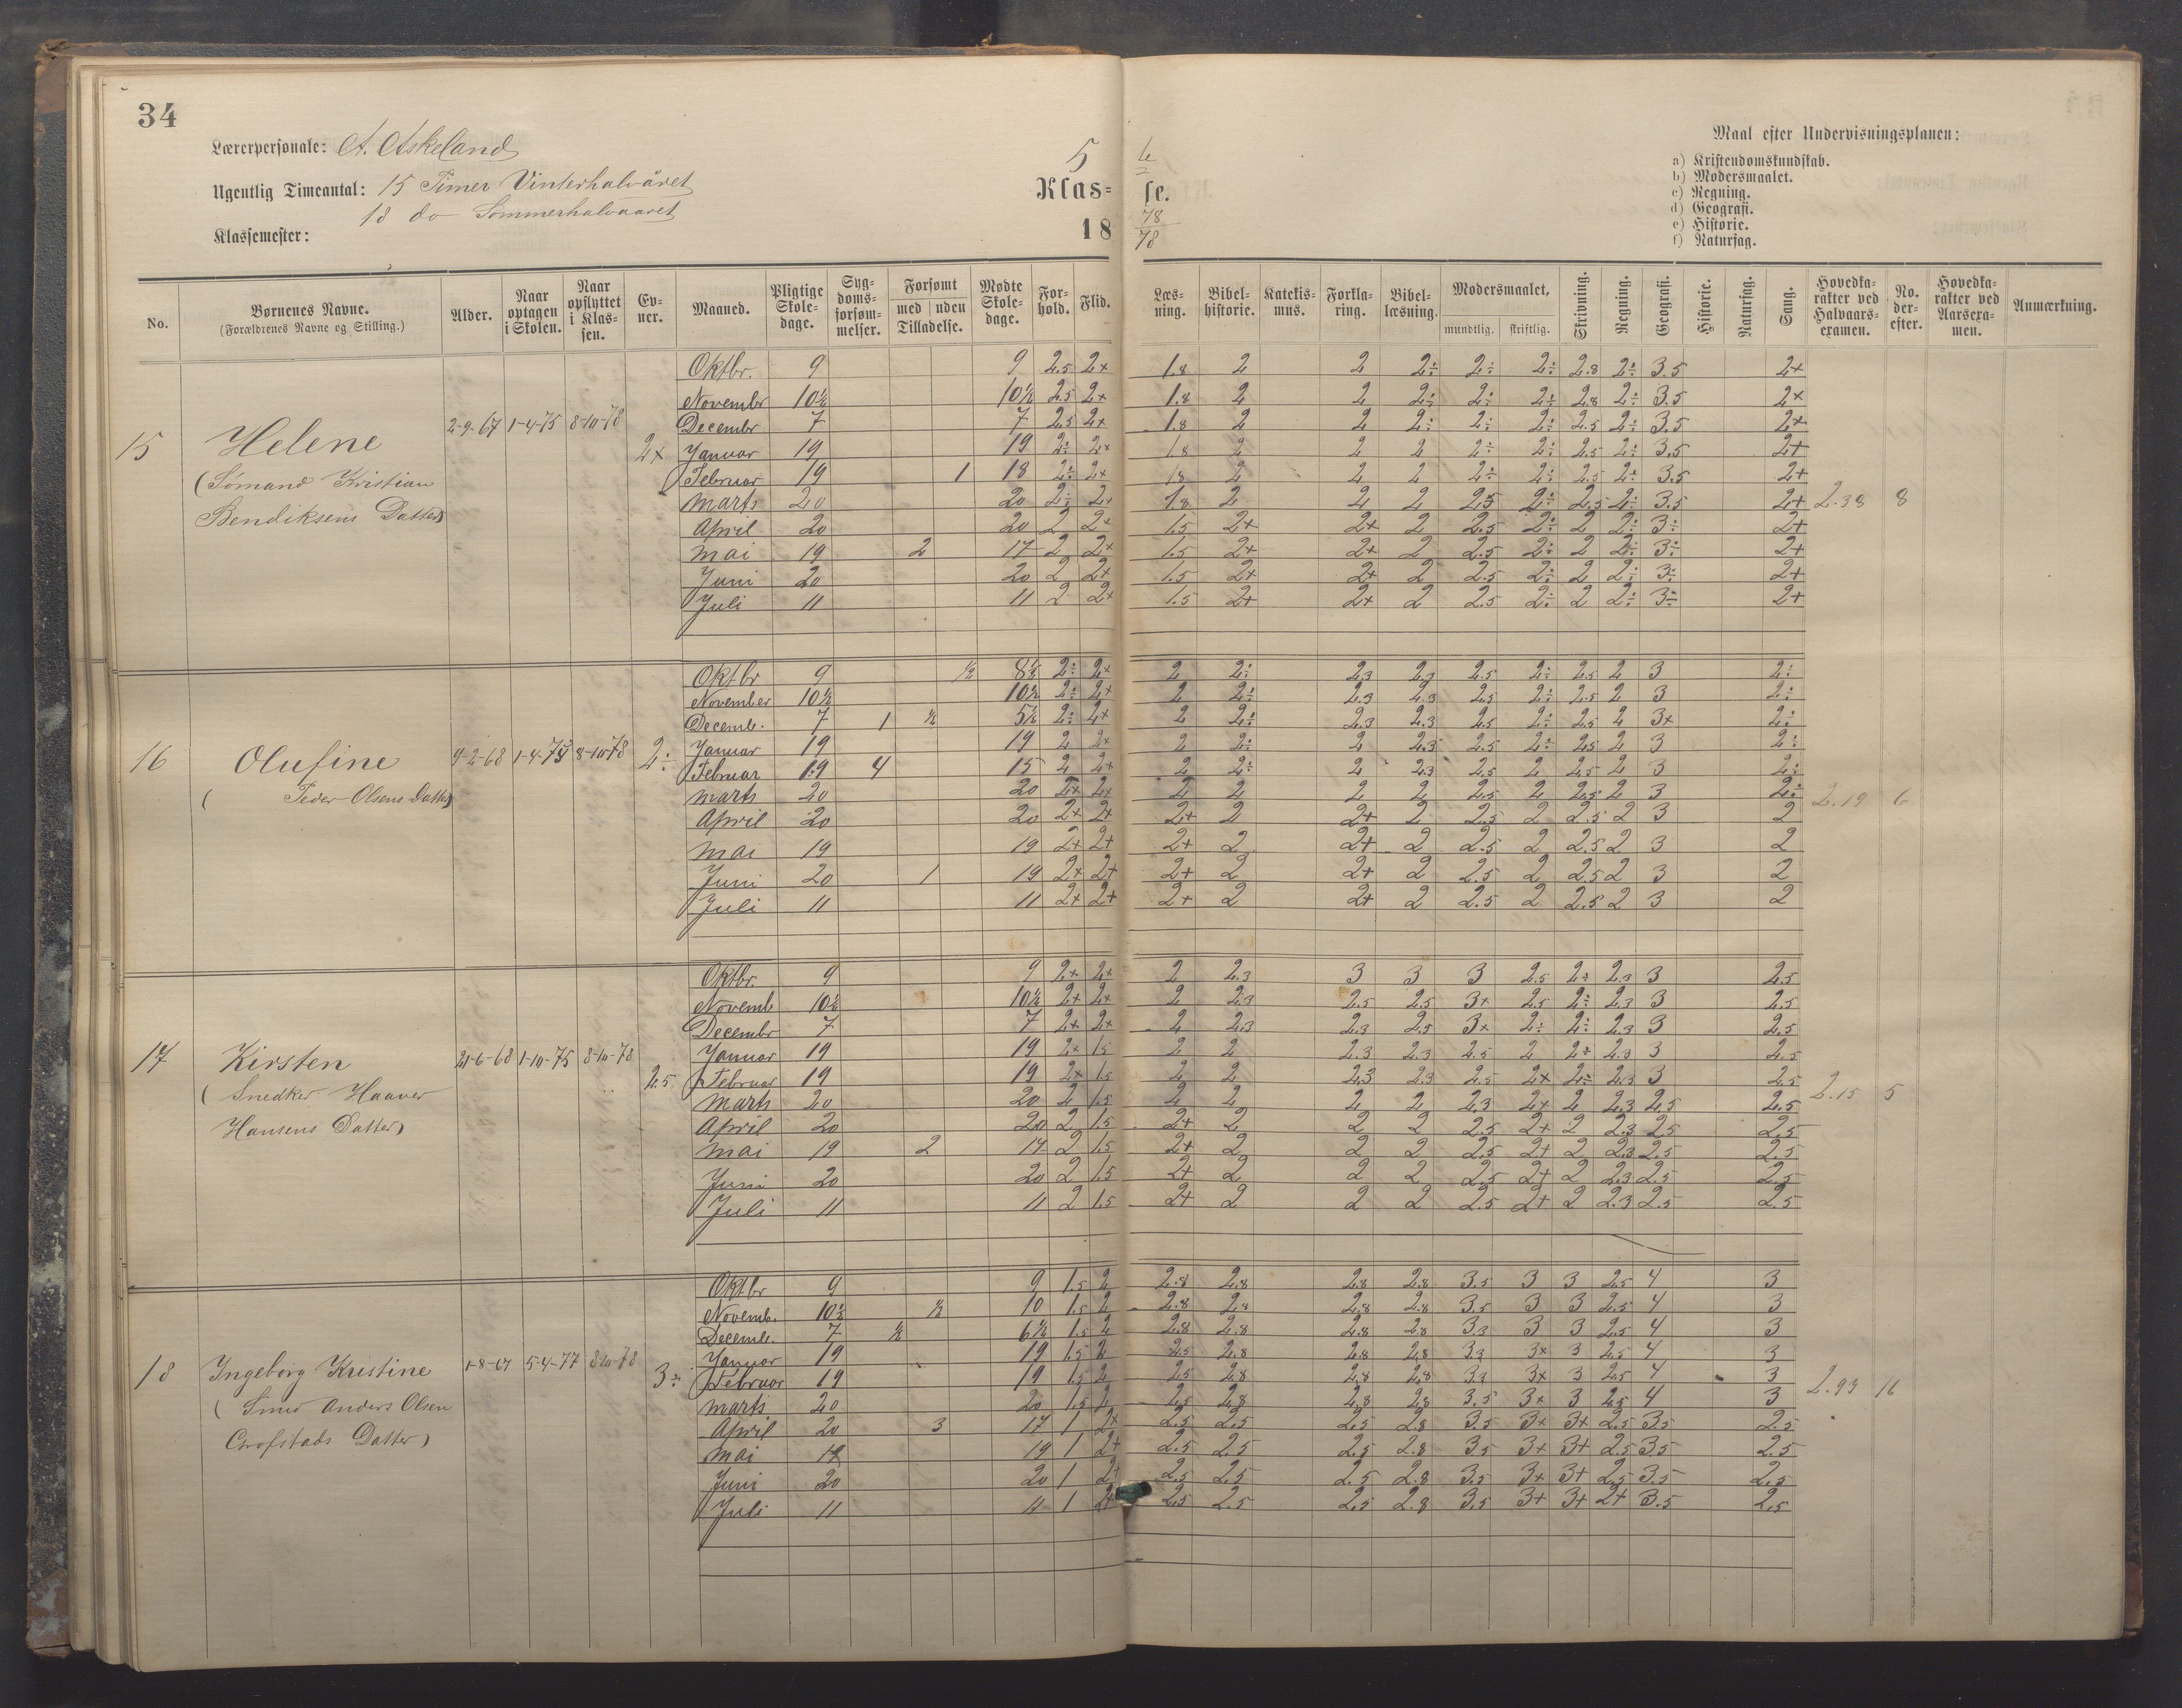 34
Lærerpersonale: A. Askeland
Ugentlig Timeantal: 15 Timer Vinterhalvåret
18 do Sommerhalvaaret
Klassemester:
5
Klas- se.
18 78
78
Maal efter Undervisningsplanen:
a) Kristendomskundskab.
b) Modersmaalet.
c) Regning.
d) Geografi.
e) Historie.
f) Naturfag.
No. | Børnenes Navne. (Forældrenes Navne og Stilling.) | Alder. | Naar optagen i Skolen. | Naar opflyttet i Klassen. | Evner. | Maaned. | Pligtige Skoledage. | Sygdomsforsømmelser. | Forsømt med uden Tilladelse. | Mødte Skoledage. | Forhold. | Flid. | Læsning. | Bibelhistorie. | Katekismus. | Forklaring. | Bibellæsning. | Modersmaalet, mundtlig. skriftlig. | Skrivning. | Regning. | Geografi. | Historie. | Naturfag. | Sang. | Hovedkarakter ved Halvaarsexamen. | No. derefter. | Hovedkarakter ved Aarsexamen. | Anmærkning.
15 Helene 2-9-67 1-4-75 8-10-78 2+
(Sømand Kristian
Bendiksens Datter)
Oktbr. 9 9 2.5 2+ 1.8 2 2 2÷ 2÷ 2÷ 2.8 2÷ 3.5 2+
Novembr 10½ 10½ 2.5 2+ 1.8 2 2 2÷ 2÷ 2÷ 2.8 2÷ 3.5 2+
Decembr 7 7 2.5 2+ 1.8 2 2 2÷ 2÷ 2÷ 2.5 2÷ 3.5 2+
Januar 19 19 2÷ 2+ 1.8 2 2 2 2÷ 2÷ 2.5 2÷ 3.5 2+
Februar 19 1 18 2÷ 2+ 1.8 2 2 2 2÷ 2÷ 2.5 2÷ 3.5 2+
Marts 20 20 2÷ 2+ 1.8 2 2 2 2.5 2÷ 2.5 2÷ 3.5 2+ 2.38 8
April 20 20 2 2+ 1.5 2+ 2+ 2 2.5 2÷ 2 2÷ 3÷ 2+
Mai 19 2 17 2 2+ 1.5 2+ 2+ 2 2.5 2÷ 2 2÷ 3÷ 2+
Juni 20 20 2 2+ 1.5 2+ 2+ 2 2.5 2÷ 2 2÷ 3÷ 2+
Juli 11 11 2 2+ 1.5 2+ 2+ 2 2.5 2÷ 2 2÷ 3÷ 2+
16 Olufine 9-2-68 8-10-78 2÷
( Peder Olsens Datter)
Oktbr 9 ½ 8½ 2÷ 2+ 2 2÷ 2.3 2.3 2.5 2÷ 2.5 2 3 2÷
November 10½ 10½ 2÷ 2+ 2 2÷ 2.3 2.3 2.5 2÷ 2.5 2 3 2÷
Decemb. 7 1 ½ 5½ 2÷ 2+ 2 2÷ 2.3 2.3 2.5 2÷ 2.5 2 3+ 2÷
Januar 19 19 2 2+ 2 2÷ 2 2.3 2.5 2÷ 2.5 2 3 2÷
Februar 19 4 15 2 2+ 2 2÷ 2 2.3 2.5 2 2.5 2 3 2÷
Marts 20 20 2+ 2+ 2 2 2 2 2.5 2 2.5 2 3 2÷ 2.19 6
April 20 20 2+ 2+ 2+ 2 2+ 2 2.5 2 2.5 2 3 2
Mai 19 19 2+ 2+ 2+ 2 2+ 2 2.5 2 2.5 2 3 2
Juni 20 1 19 2+ 2+ 2+ 2 2+ 2 2.5 2 2.5 2 3 2
Juli 11 11 2+ 2+ 2+ 2 2+ 2 2.5 2 2.5 2 3 2
17 Kirsten 21-6-68 1-10-75 8-10-78 2.5
(Snedker Haaver
Hansens Datter)
Oktbr. 9 9 2+ 2+ 2 2.3 3 3 3 2.5 2÷ 2.3 3 2.5
Novemb 10½ 10½ 2+ 2+ 2 2.3 2.5 2.5 3+ 2.5 2÷ 2.3 3 2.5
Decembr 7 7 2+ 2+ 2 2.3 2.3 2.5 3+ 2÷ 2÷ 2.3 3 2.5
Januar 19 19 2+ 1.5 2 2 2.3 2.3 2.5 2 2+ 2.3 3 2.5
Februar 19 19 2+ 1.5 2 2 2.3 2.3 2.5 2+ 2÷ 2.3 3 2.5
Marts 20 20 2 1.5 2 2 2 2 2.3 2+ 2 2.3 2.5 2.5 2.15 5
April 20 20 2 1.5 2+ 2 2 2 2.5 2+ 2 2.3 2.5 2.5
Mai 19 2 17 2 1.5 2+ 2 2 2 2.5 2+ 2 2.3 2.5 2.5
Juni 20 20 2 1.5 2+ 2 2 2 2.5 2+ 2 2.3 2.5 2.5
Juli 11 11 2 1.5 2+ 2 2 2 2.5 2+ 2 2.3 2.5 2.5
18 Ingeborg Kristine 1-8-67 5-4-77 8-10-78 3÷
(Smed Anders Olsen
Grofstads Datter)
Oktbr 9 9 1.5 2 2.8 2.8 2.8 2.8 3.5 3 3 2.5 4 3
Novemb. 10½ ½ 10 1.5 2 2.8 2.8 2.8 2.8 3.5 3 3 2.5 4 3
Decemb. 7 ½ 6½ 1.5 2 2.8 2.8 2.8 2.8 3.3 3 3 2.5 4 3
Januar 19 19 1.5 2 2.5 2.8 2.8 2.8 3.3 3+ 3 2.5 4 3
Februar 19 19 1.5 2 2.5 2.8 2.8 2.8 3.3 3+ 3 2.5 4 3
Marts 20 20 1.5 2 2.5 2.8 2.8 2.8 3.5 3+ 3 2.5 4 3 2.93 16
April 20 3 17 1 2+ 2.5 2.5 2.5 2.8 3.5 3+ 3+ 2.5 3.5 2.5
Mai 19 19 1 2+ 2.5 2.5 2.5 2.8 3.5 3+ 3+ 2.5 3.5 2.5
Juni 20 20 1 2+ 2.5 2.5 2.5 2.8 3.5 3+ 3+ 2.5 3.5 2.5
Juli 11 11 1 2+ 2.5 2.5 2.5 2.8 3.5 3+ 3+ 2+ 3.5 2.5